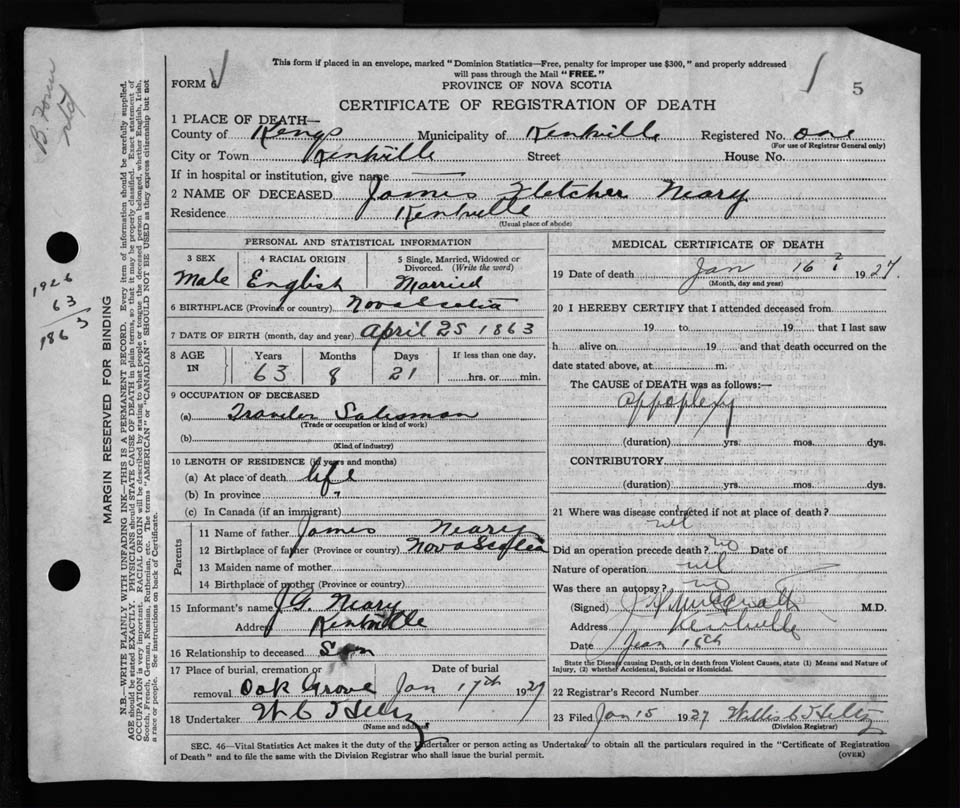 This form if placed in an envelope, marked "Dominion Statistics—Free, penalty for improper use $300," and properly addressed
will pass through the Mail "FREE."
FORM
PROVINCE OF NOVA SCOTIA
5
CERTIFICATE OF REGISTRATION OF DEATH
1 PLACE OF DEATH—
County of Kings Municipality of Kentville Registered No. one
(For use of Registrar General only)
City or Town Kentville Street House No.
If in hospital or institution, give name
2 NAME OF DECEASED James Fletcher Neary
Residence Kentville
(Usual place of abode)
PERSONAL AND STATISTICAL INFORMATION
3 SEX 4 RACIAL ORIGIN 5 Single, Married, Widowed or
Divorced. (Write the word)
Male English Married
6 BIRTHPLACE (Province or country) Nova Scotia
7 DATE OF BIRTH (month, day and year) April 25 1863
8 AGE IN Years Months Days If less than one day,
63 8 21 hrs. or min.
9 OCCUPATION OF DECEASED
(a) Traveler Salisman
(Trade or occupation or kind of work)
(b)
(Kind of industry)
10 LENGTH OF RESIDENCE (in years and months)
(a) At place of death life
(b) In province "
(c) In Canada (if an immigrant)
Parents
11 Name of father James Neary
12 Birthplace of father (Province or country) Nova Scotia
13 Maiden name of mother
14 Birthplace of mother (Province or country)
15 Informant's name J G. Neary
Address Kentville
16 Relationship to deceased Son
17 Place of burial, cremation or Date of burial
removal Oak Grove Jan 17th 1927
18 Undertaker W C
(Name and address)
MEDICAL CERTIFICATE OF DEATH
19 Date of death Jan 16 1927.
(Month, day and year)
20 I HEREBY CERTIFY that I attended deceased from
19 to 19 that I last saw
h alive on 19 and that death occurred on the
date stated above, at m.
The CAUSE of DEATH was as follows:—
Appoplexy
(duration) yrs. mos. dys.
CONTRIBUTORY
(duration) yrs. mos. dys.
21 Where was disease contracted if not at place of death?
nil
Did an operation precede death? no Date of
Nature of operation nil
Was there an autopsy? no
(Signed) M.D.
Address Kentville
Date Jan 16th
State the Disease causing Death, or in death from Violent Causes, state (1) Means and Nature of
Injury, (2) whether Accidental, Suicidal or Homicidal.
22 Registrar's Record Number
23 Filed Jan 15 1927 Willis C
(Division Registrar)
SEC. 46—Vital Statistics Act makes it the duty of the Undertaker or person acting as Undertaker to obtain all the particulars required in the "Certificate of Registration
of Death" and to file the same with the Division Registrar who shall issue the burial permit.
(OVER)
1926
63
1863
MARGIN RESERVED FOR BINDING
N.B.—WRITE PLAINLY WITH UNFADING INK—THIS IS A PERMANENT RECORD. Every item of information should be carefully supplied.
AGE should be stated EXACTLY. PHYSICIANS should STATE CAUSE OF DEATH in plain terms, so that it may be properly classified. Exact statement of
OCCUPATION is very important. RACIAL ORIGIN will be described by stating to what people or tongue the deceased person belonged, whether English, Irish,
Scotch, French, German, Russian, Ruthenian, etc. The terms "AMERICAN" or "CANADIAN" SHOULD NOT BE USED as they express citizenship but not
a race or people. See instructions on back of Certificate.